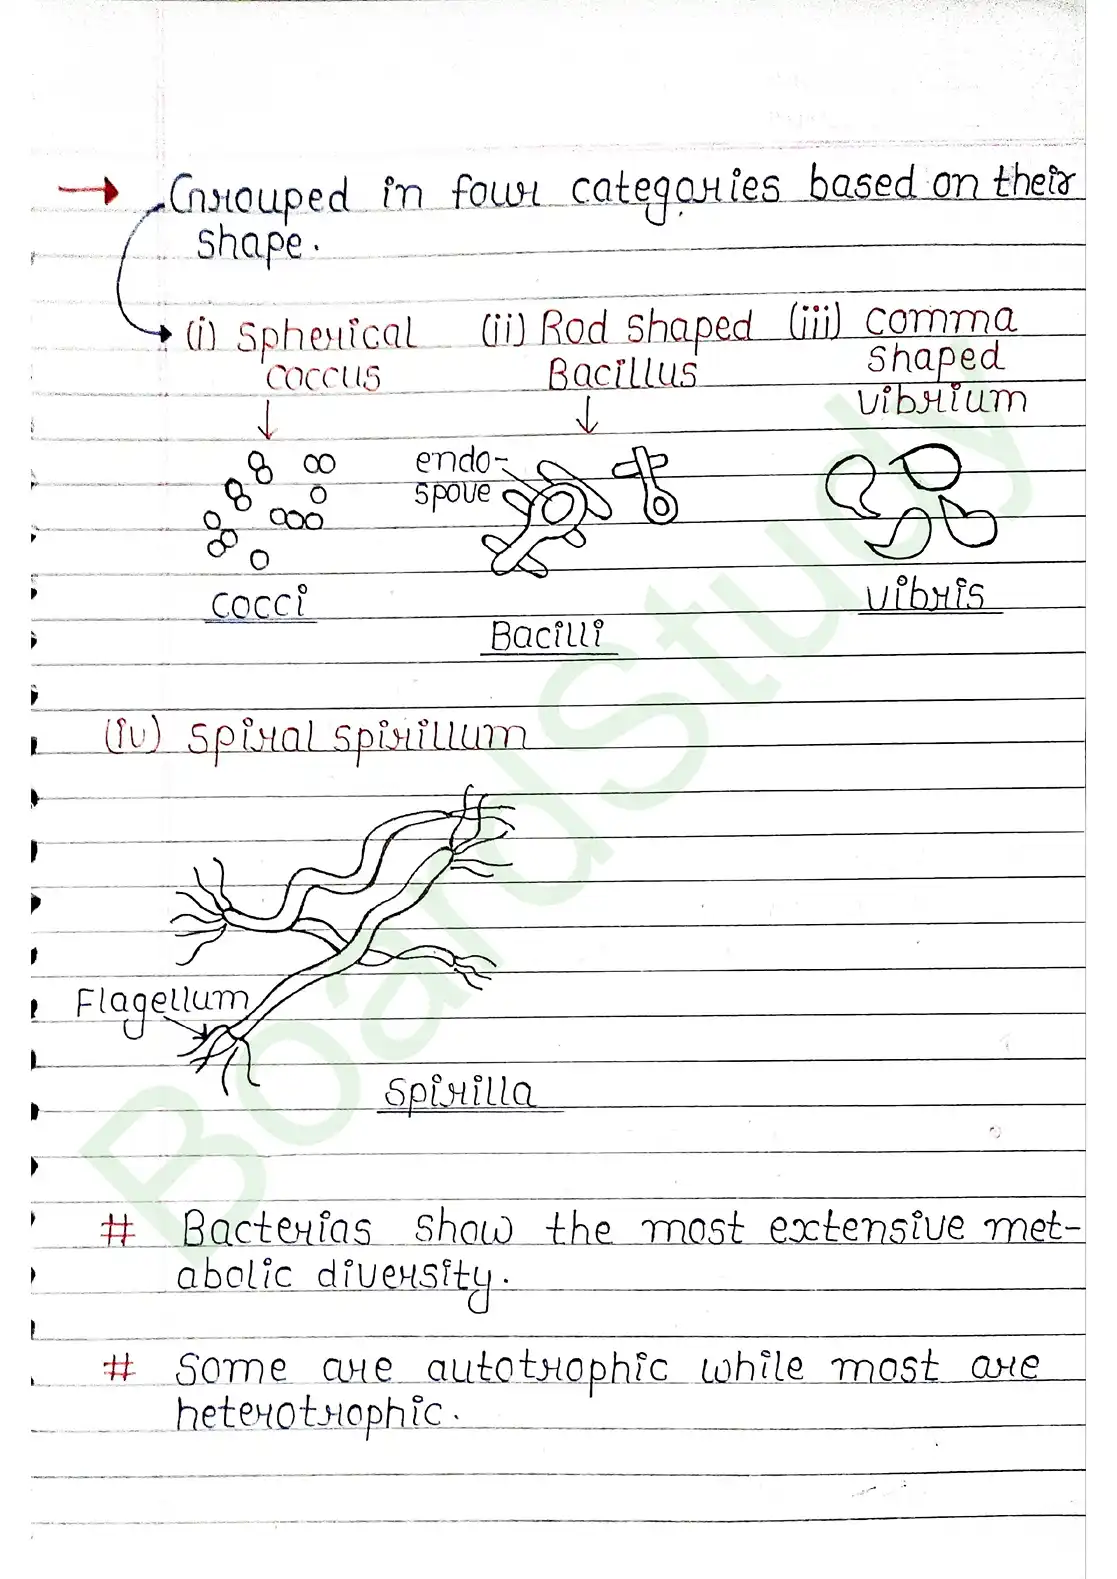 Grouped in four categories based on their
shape.
(i) Spherical (ii) Rod shaped (iii) comma
coccus Bacillus shaped
vibrium
endo-
spove
cocci
Bacilli
vibris
(iv) spiral spirillum
Flagellum
spirilla
# Bacterias show the most extensive met-
abolic diversity.
# Some are autotrophic while most are
heterotrophic.
BoardStudy